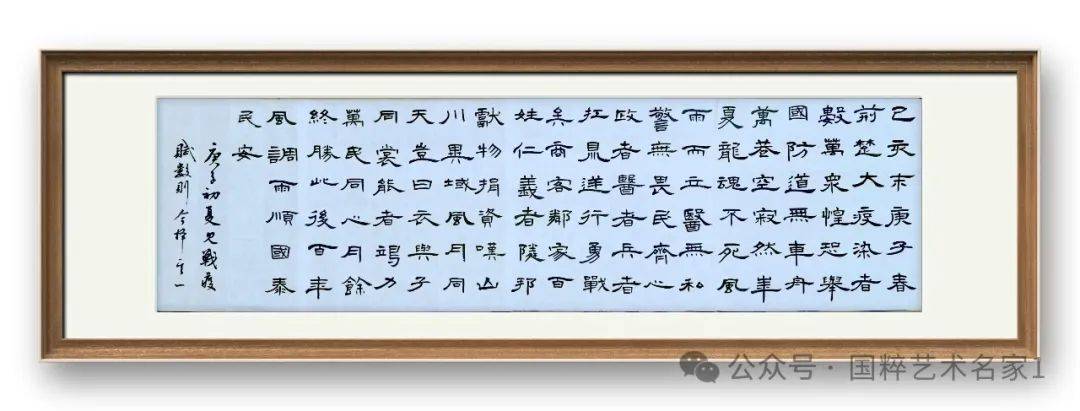 己亥末庚子春
前楚大疫染者
數萬衆惶恐舉
國防道無車舟
萬巷空寂然華
夏龍魂不死風
雨而立醫無私
警無畏民齊心
政者醫者兵者
扛鼎逆行勇戰
矣商客鄰家百
姓仁義者隨邦
獻物捐資嘆山
川異域風月同
天豈曰衣與子
同裳能者竭力
萬民同心月餘
終勝此後百年
風調雨順國泰
民安
庚子初夏戰疫
賦數則今擇其一
公众号·国粹艺术名家1